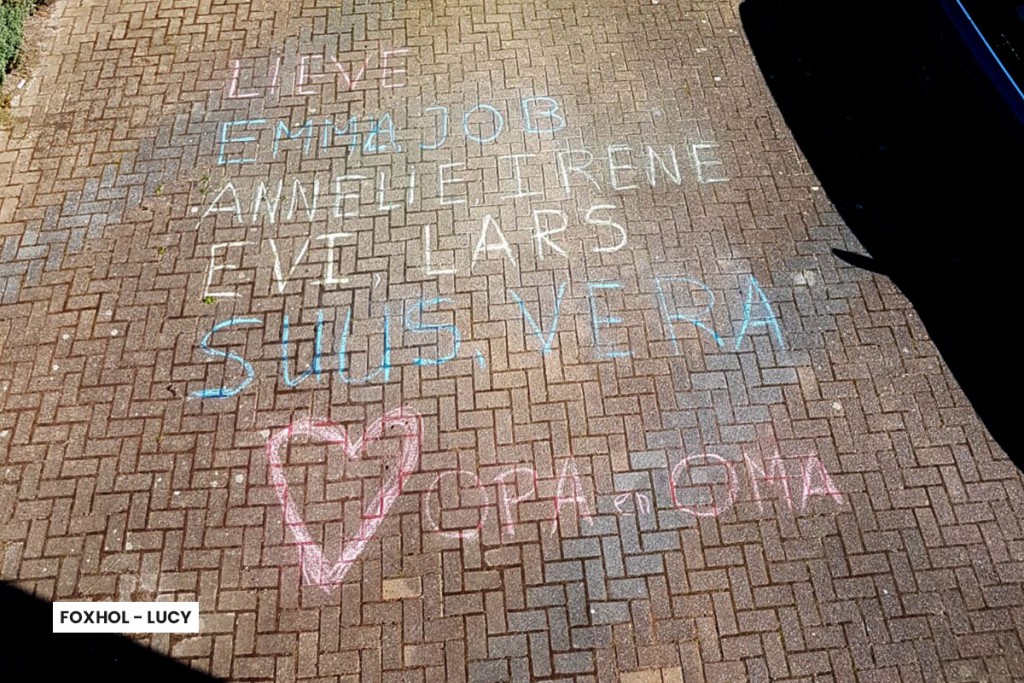 LIEVE
EMMA JOB
ANNELIE, IRENE
EVI, LARS
SUUS, VERA
OPA en OMA
FOXHOL - LUCY